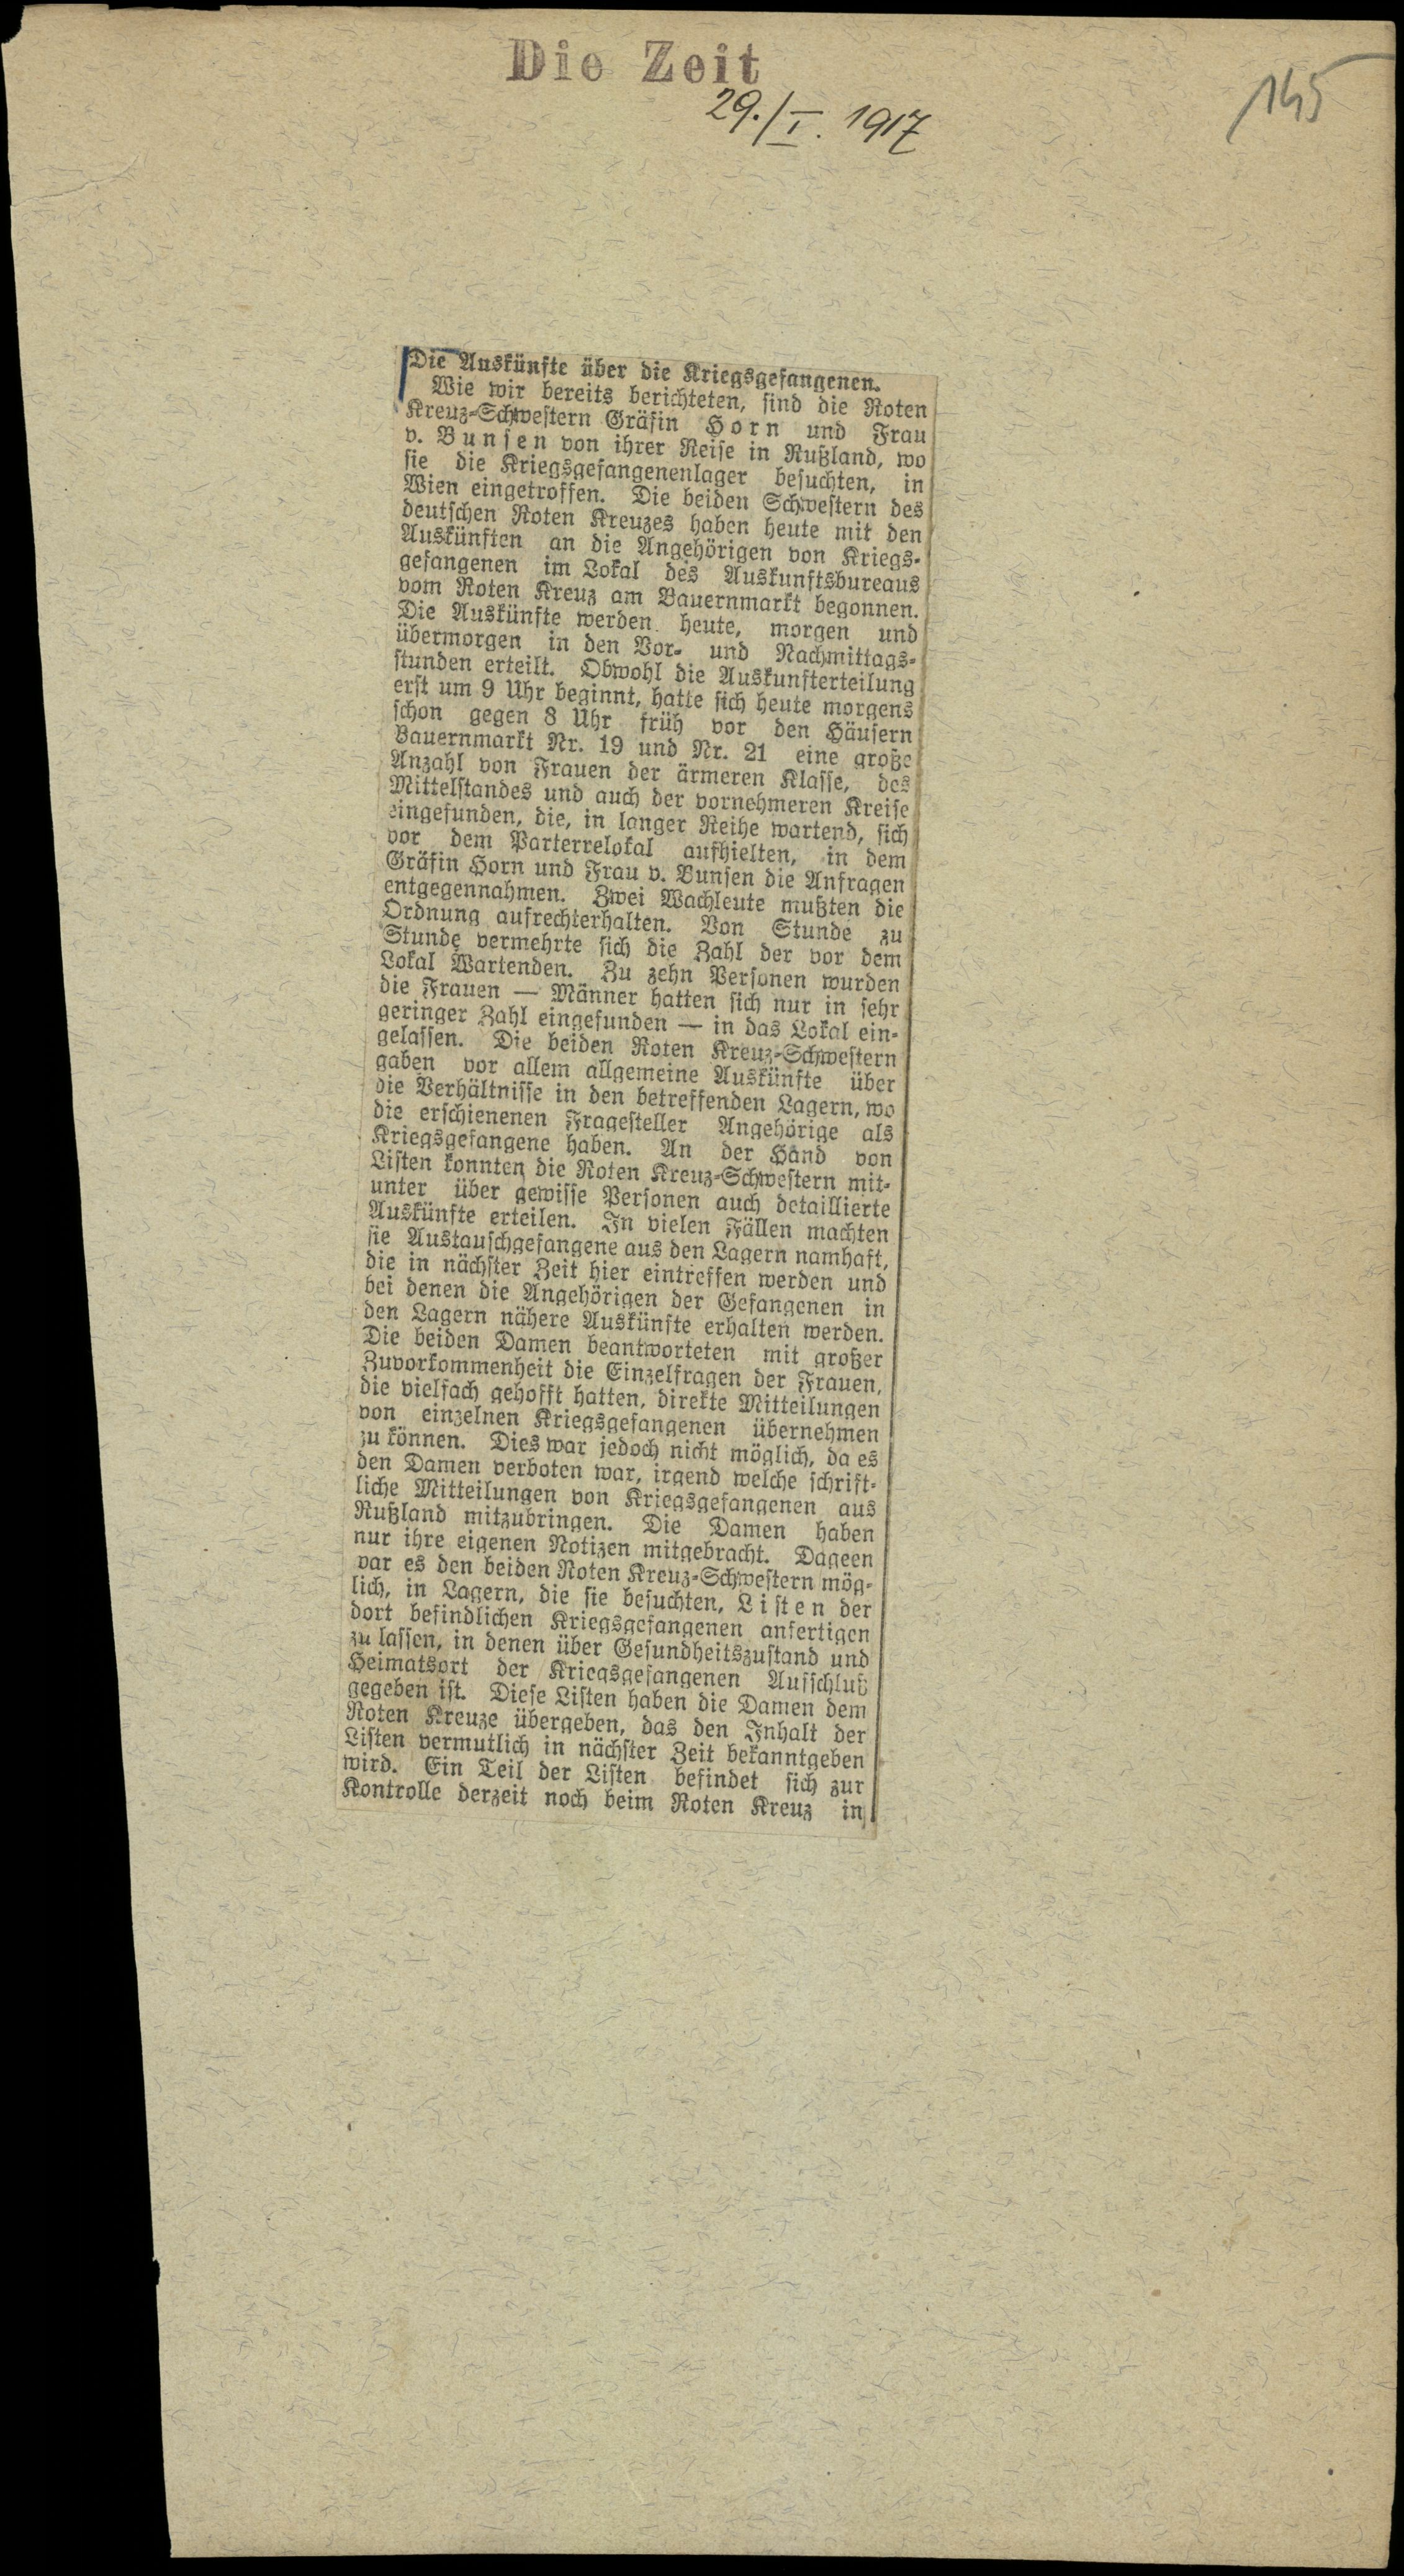 Die Zeit
29./I. 1917
145
Die Auskünfte über die Kriegsgefangenen.
Wie wir bereits berichteten, sind die Roten
Kreuz-Schwestern Gräfin Horn und Frau
v. Bunsen von ihrer Reise in Rußland, wo
sie die Kriegsgefangenenlager besuchten, in
Wien eingetroffen. Die beiden Schwestern des
deutschen Roten Kreuzes haben heute mit den
Auskünften an die Angehörigen von Kriegs-
gefangenen im Lokal des Auskunftsbureaus
vom Roten Kreuz am Bauernmarkt begonnen.
Die Auskünfte werden heute, morgen und
übermorgen in den Vor- und Nachmittags-
stunden erteilt. Obwohl die Auskunfterteilung
erst um 9 Uhr beginnt, hatte sich heute morgens
schon gegen 8 Uhr früh vor den Häusern
Bauernmarkt Nr. 19 und Nr. 21 eine große
Anzahl von Frauen der ärmeren Klasse, des
Mittelstandes und auch der vornehmeren Kreise
eingefunden, die, in langer Reihe wartend, sich
vor dem Parterrelokal aufhielten, in dem
Gräfin Horn und Frau v. Bunsen die Anfragen
entgegennahmen. Zwei Wachleute mußten die
Ordnung aufrechterhalten. Von Stunde zu
Stunde vermehrte sich die Zahl der vor dem
Lokal Wartenden. Zu zehn Personen wurden
die Frauen — Männer hatten sich nur in sehr
geringer Zahl eingefunden — in das Lokal ein-
gelassen. Die beiden Roten Kreuz-Schwestern
gaben vor allem allgemeine Auskünfte über
die Verhältnisse in den betreffenden Lagern, wo
die erschienenen Fragesteller Angehörige als
Kriegsgefangene haben. An der Hand von
Listen konnten die Roten Kreuz-Schwestern mit-
unter über gewisse Personen auch detaillierte
Auskünfte erteilen. In vielen Fällen machten
sie Austauschgefangene aus den Lagern namhaft,
die in nächster Zeit hier eintreffen werden und
bei denen die Angehörigen der Gefangenen in
den Lagern nähere Auskünfte erhalten werden.
Die beiden Damen beantworteten mit großer
Zuvorkommenheit die Einzelfragen der Frauen,
die vielfach gehofft hatten, direkte Mitteilungen
von einzelnen Kriegsgefangenen übernehmen
zu können. Dies war jedoch nicht möglich, da es
den Damen verboten war, irgend welche schrift-
liche Mitteilungen von Kriegsgefangenen aus
Rußland mitzubringen. Die Damen haben
nur ihre eigenen Notizen mitgebracht. Dageen
var es den beiden Roten Kreuz-Schwestern mög-
lich, in Lagern, die sie besuchten, Listen der
dort befindlichen Kriegsgefangenen anfertigen
zu lassen, in denen über Gesundheitszustand und
Heimatsort der Kriegsgefangenen Aufschluß
gegeben ist. Diese Listen haben die Damen dem
Roten Kreuze übergeben, das den Inhalt der
Listen vermutlich in nächster Zeit bekanntgeben
wird. Ein Teil der Listen befindet sich zur
Kontrolle derzeit noch beim Roten Kreuz in